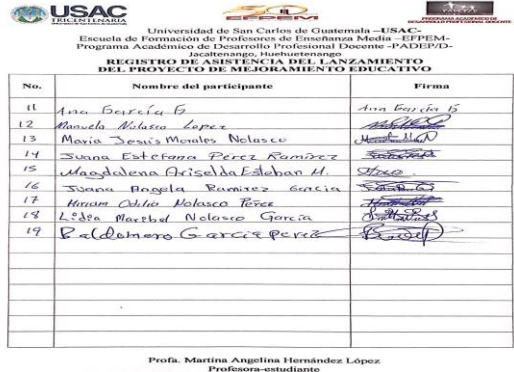 USAC
TRICENTENARIA
EFPEM
PROGRAMA ACADÉMICO DE
DESARROLLO PROFESIONAL DOCENTE
Universidad de San Carlos de Guatemala –USAC-
Escuela de Formación de Profesores de Enseñanza Media –EFPEM-
Programa Académico de Desarrollo Profesional Docente -PADEP/D-
Jacaltenango, Huehuetenango
REGISTRO DE ASISTENCIA DEL LANZAMIENTO
DEL PROYECTO DE MEJORAMIENTO EDUCATIVO
No. Nombre del participante Firma
11 Ana García G Ana García
12 Manuela Nolasco Lopez
13 Maria Jesús Morales Nolasco
14 Juana Estefana Pérez Ramírez
15 Magdalena Griselda Esteban M.
16 Juana Angela Ramirez Garcia
17 Odilio Nolasco Pérez
18 Lidia Maribel Nolasco García
19 Baldomero Garcia perez
Profa. Martina Angelina Hernández López
Profesora-estudiante